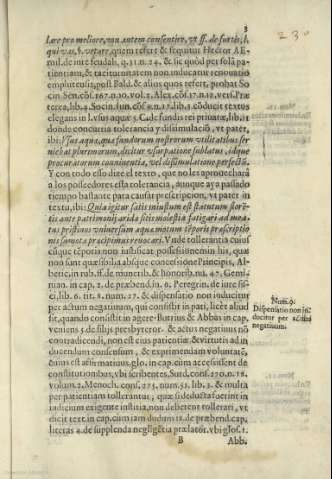 3
230
lare pro meliore, non autem consentire, vt ff. de furtis, l.
qui vas, §. vetare, quem refert & sequitur Hector AE-
mil. de iure feudali, q. 31. n. 24. & sic quòd per solā pa-
tientiam, & taciturnitatem non inducatur renouatio
emphiteusis, post Bald. & alios quos refert, probat So
cin. Sen. cōs. 167. n. 10. vol. 2. Alex. cōs. 17. n. 12. vers. Præ
terea, lib. 4. Socin. Iun. cōs. n. 17. lib. 1. cōducit textus
elegans in l. vsus aquæ 5. C. de fundis rei priuatæ, lib. 11.
donde concurria tolerancia y dissimulaciō, vt patet,
ibi: Vsus aqua, qua fundorum nostrorum vtilitatibus ser
uiebat
procuratorum conniuentia, vel dissimulatione perfectū.
Y con todo esso dize el texto, que no les aprouecharà
a los posseedores esta tolerancia, aunque aya passado
tiempo bastante para causar prescripcion, vt patet in
textu, ibi: Quia igitur satis iniustum est statutum
sis ante patrimonij arida sitis molestia fatigari ad mea
tus pristinos vniuersum aquæ motum tēporis prascriptio
nis præcipimus reuocari. Vnde tollerantia cuius
cūque tēporis non iustificat possessionem in his, quæ
non sunt absque concessione Principis, Al-
beric. in rub. ff. de munerib. & honorib. nu. 47. Gemi-
nian. in cap. 2. de præbend. in 6. Peregrin. de iure fis-
ci, lib. 6. tit. 8. num. 27. & dispensatio non inducitur
per actum negatiuum, qui consistit in pati, licèt aliud
sit, quando consistit in agere: Butrius & Abbas in cap.
veniens 5. de filijs presbyteror. & actus negatiuus nō
contradicendi, non est eius patientiæ & virtutis ad in
ducendum consensum, & exprimendam voluntatē,
cuius est affirmatiuus, glo. in cap. cùm accessissent de
constitutionibus, vbi scribentes, Surd. cons. 270. n. 18.
volum. 2. Menoch. cons. 275. num. 51. lib. 3. & multa
per patientiam tollerantur, quæ si deducta fuerint in
iudicium exigente iustitia, non debent tollerari, vt
dicit text. in cap. cum iam dudum 18. de præbend. cap.
licet 4. de supplenda negligētia prælator. vbi glos. 1.
B Abb.
Num. 9.
Dispensatio non in
ducitur per actum
negatiuum.